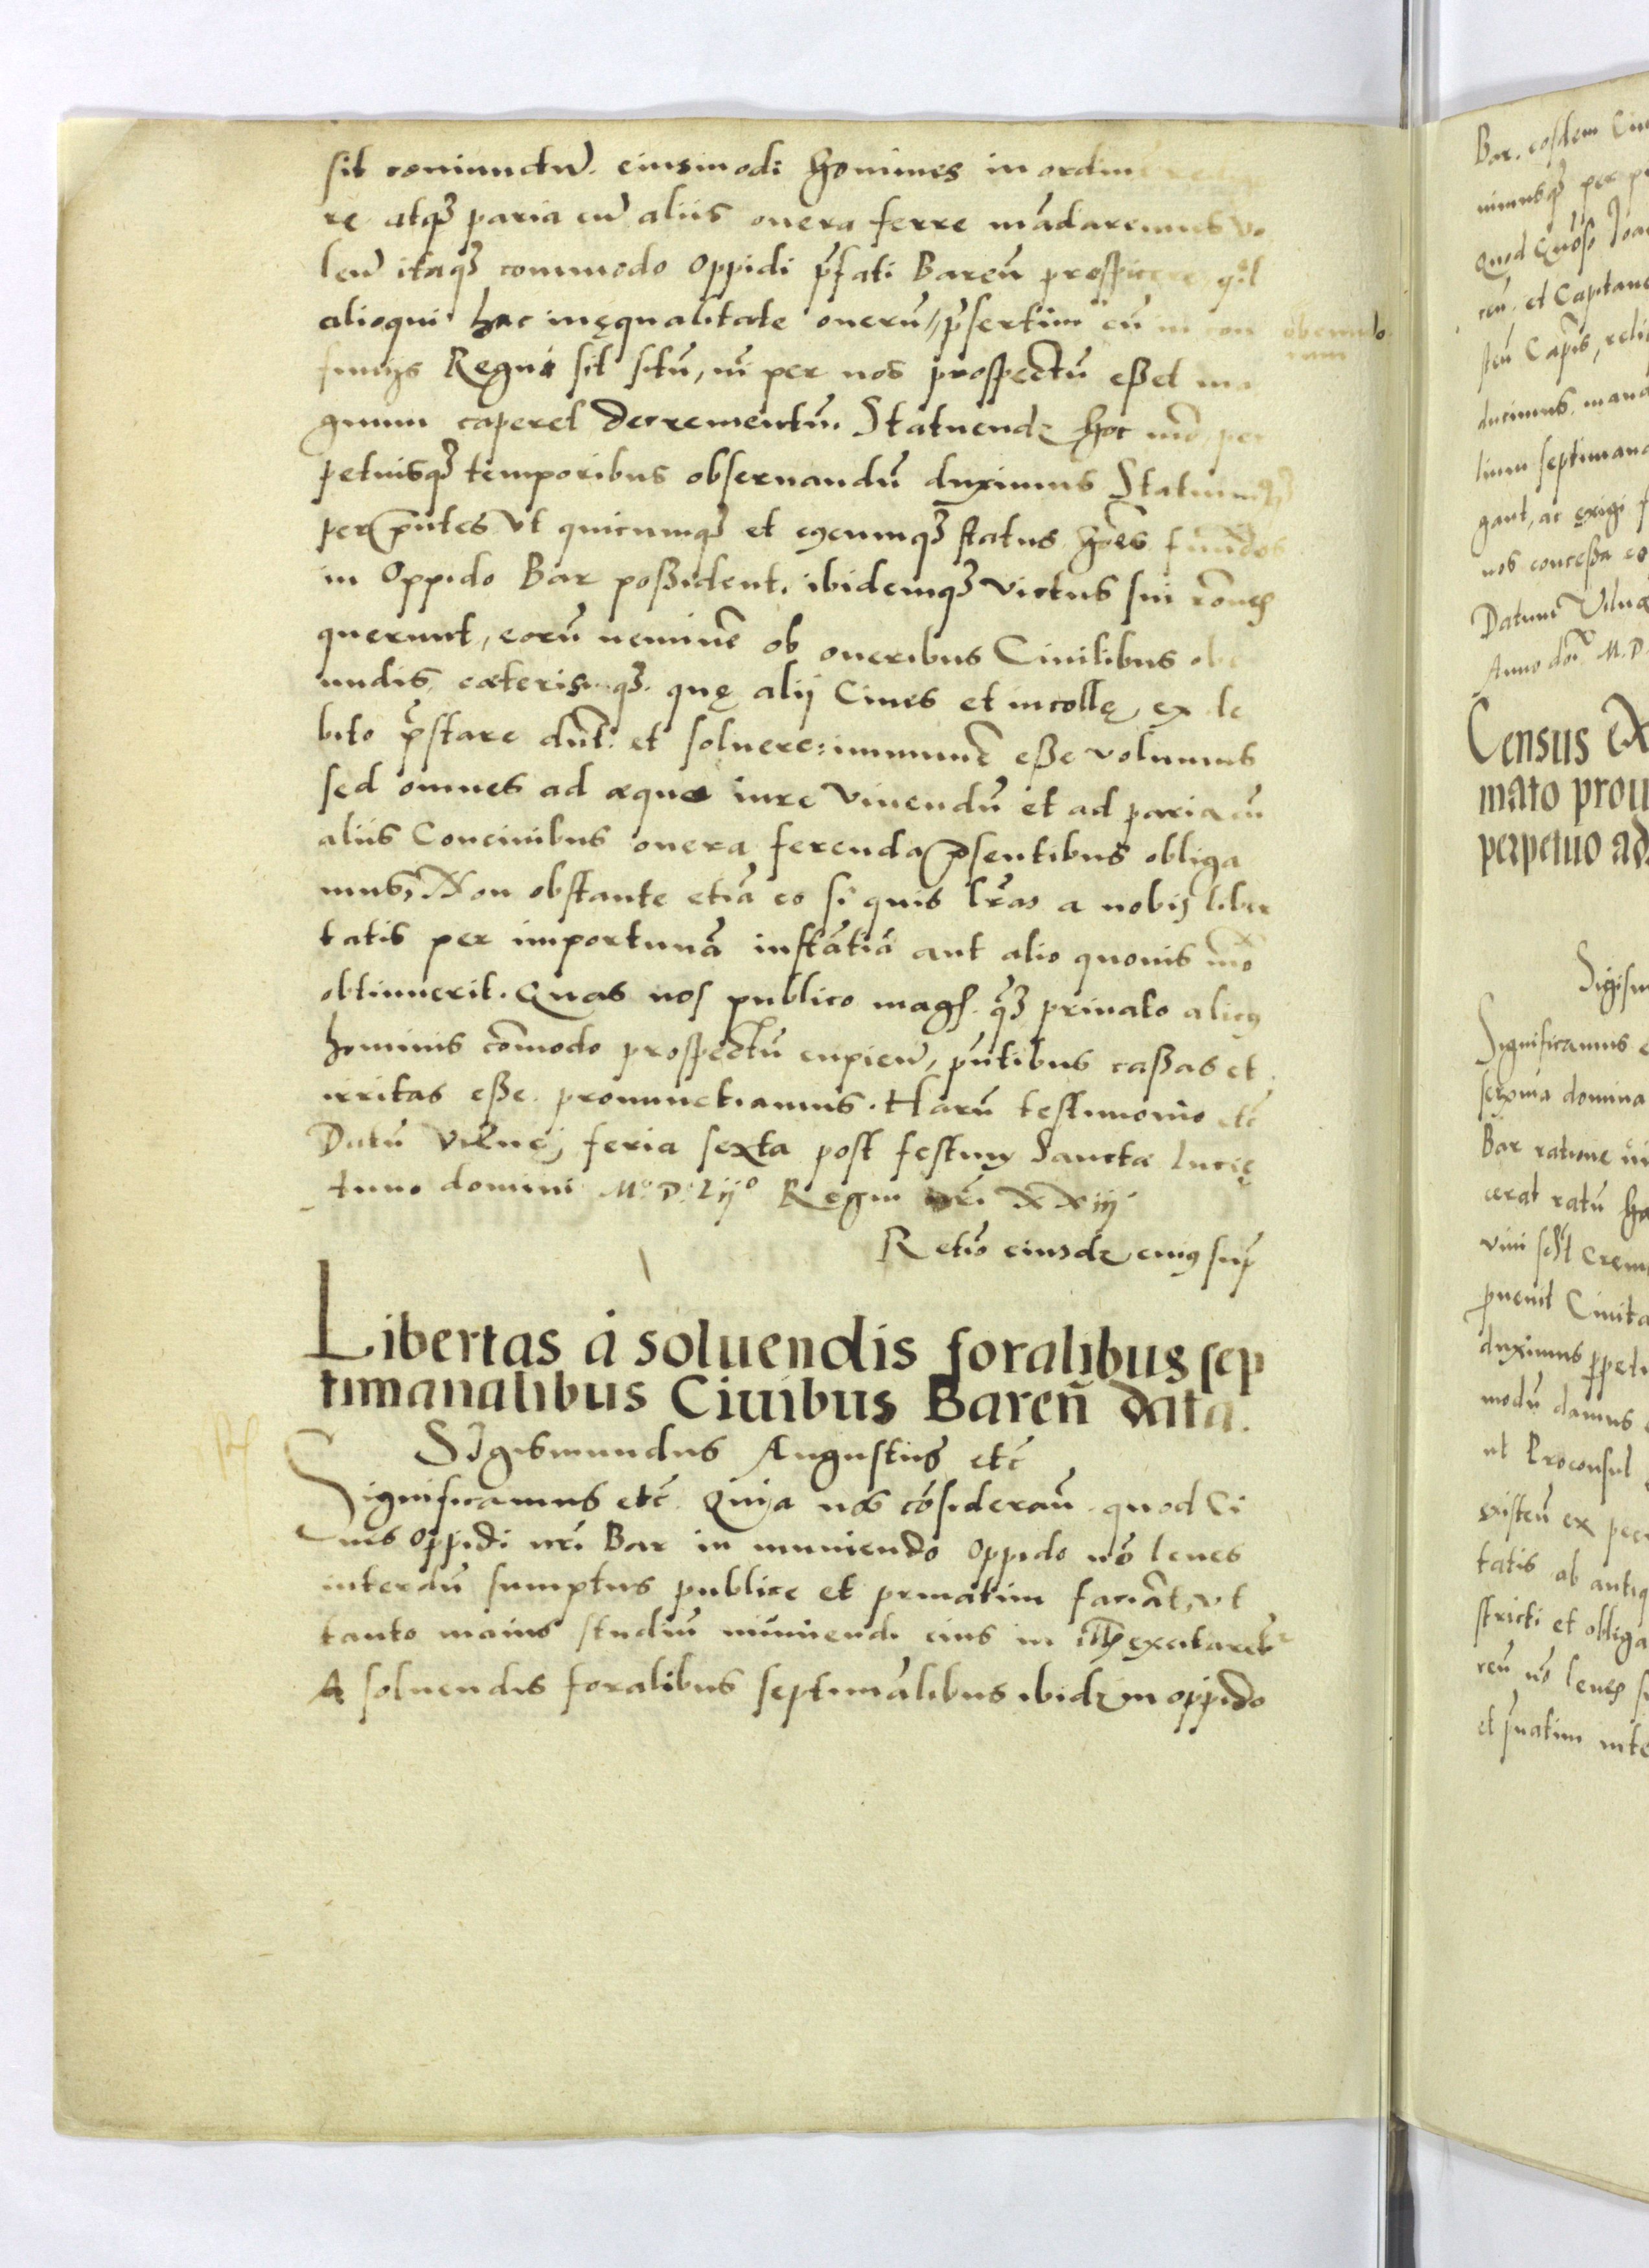 sit coniunctu͂. eiusmodi homines in ordine
re atq3 paria cu͂ aliis onera ferre mādaremus vo
len͂ itaq3 commodo Oppidi p͂fati Baren͂ prospicere q͂d
alioqui hac inęqualitate oneru͂, p͂sertim cu͂ in con
finijs Regni sit situ͂, ni͂ per nos prospectu͂ eßet ma
gnum caperet decrementu͂. Statuendʒ hoc mō, per
petuisq3 temporibus obseruandu͂ duximus Statuimq3
per p͂ntes Vt quicumq3 et cȝcumq3 status ho͂es fundos
in Oppido Bar poßident, ibidemq3 victus sui ro͂nes
querunt, eoru͂ nemine͂ ob oneribus Ciuilibus obe
undis, cæterisq3 quę alij Ciues et incollę ex de
bito p͂stare dn͂t et soluere: immune͂ eße volumus
sed omnes ad æquo iure viuendu͂ et ad paria cu͂
aliis Conciuibus onera ferenda p͂sentibus obliga
mus, Non obstante etia͂ eo si quis lr͂as a nobis liber
tatis per importuna͂ insta͂tia͂ aut alio quouis mō
obtinuerit. Quas nos publico mags q͂3 priuato alicȝ
hominis co͂modo prospectu͂ cupien͂, p͂ntibus caßas et
irritas eße pronunctiamus. Haru͂ testimonio etc͂
Datu͂ Vilnę feria sexta post festum Sanctæ Lucię
Anno domini M.° D.° Lij° Regni nr͂i XXiij
R etio͂ eiusdʒ cuiȝ sup͂
Libertas á soluendis foralibus sep
timanalibus Ciuibus Baren͂ data.
Sigismundus Augustus etc͂
Significamus etc͂. Quia nos co͂sideran͂ quod Ci
ues Oppidi nr͂i Bar in muniendo Oppido no͂ leues
interdu͂ sumptus publice et priuatim facia͂t, vt
tanto maius studiu͂ muniendi eius in illis excitaret͂
A soluendis foralibus septima͂libus ibidʒ in oppido
Bar. eosdem Ciu
nimusq3 per p
Quod
cen͂. et Capitane
sten͂ Cap͂is, reli
ducimus, mand
lium septimana
gant, ac exigi f
nos conceßa eo
Datum Vilnæ
Anno do͂i M.D.
Census ex
mato prou
perpetuo ad
Sigism
Significamus e
domina
Bar ratione
cerat ratu͂ ha
vini Crem
p͂uenit Ciuita
duximus p͂petu
modu͂ damus
ut Proconsul
xisten͂ ex pec
tatis ab antiq
stricti et obliga
ren͂ no͂ leues s
et p͂uatim inte